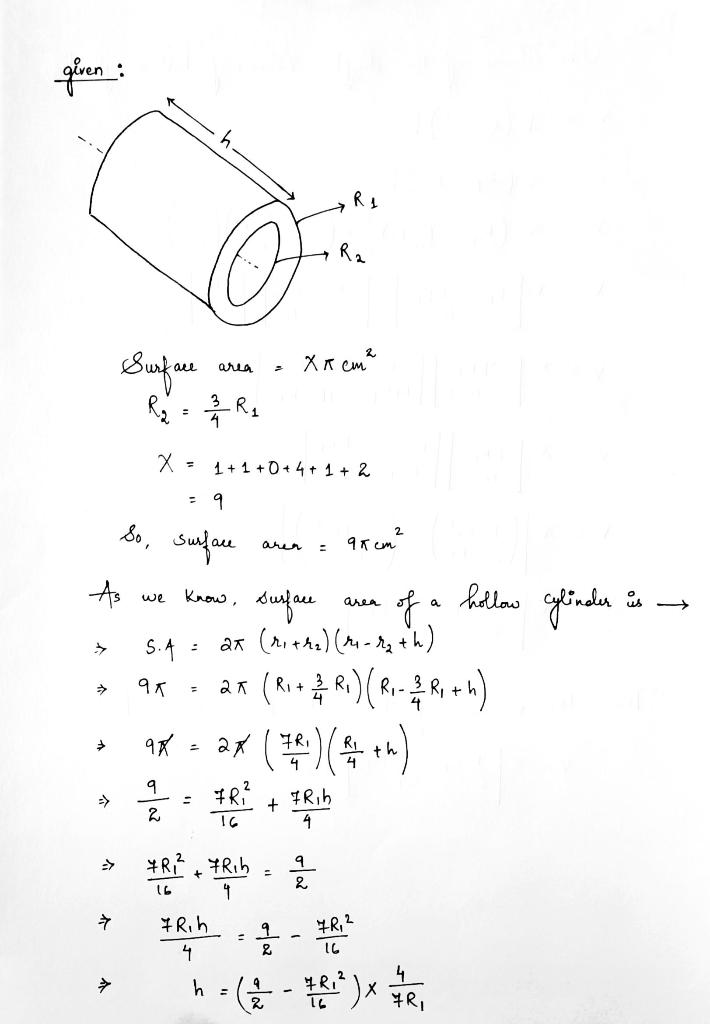 given :
h
R₁
R₂
Surface area = Xπ cm²
R₂ = 3/4 R₁
X = 1+1+0+4+1+2
= 9
So, surface area = 9π cm²
As we know, surface area of a hollow cylinder is →
⇒ S.A = 2π (r₁+r₂)(r₁-r₂+h)
⇒ 9π = 2π (R₁ + 3/4 R₁)(R₁ - 3/4 R₁ + h)
⇒ 9π = 2π (7R₁/4)(R₁/4 + h)
⇒ 9/2 = 7R₁²/16 + 7R₁h/4
⇒ 7R₁²/16 + 7R₁h/4 = 9/2
⇒ 7R₁h/4 = 9/2 - 7R₁²/16
⇒ h = (9/2 - 7R₁²/16) × 4/7R₁